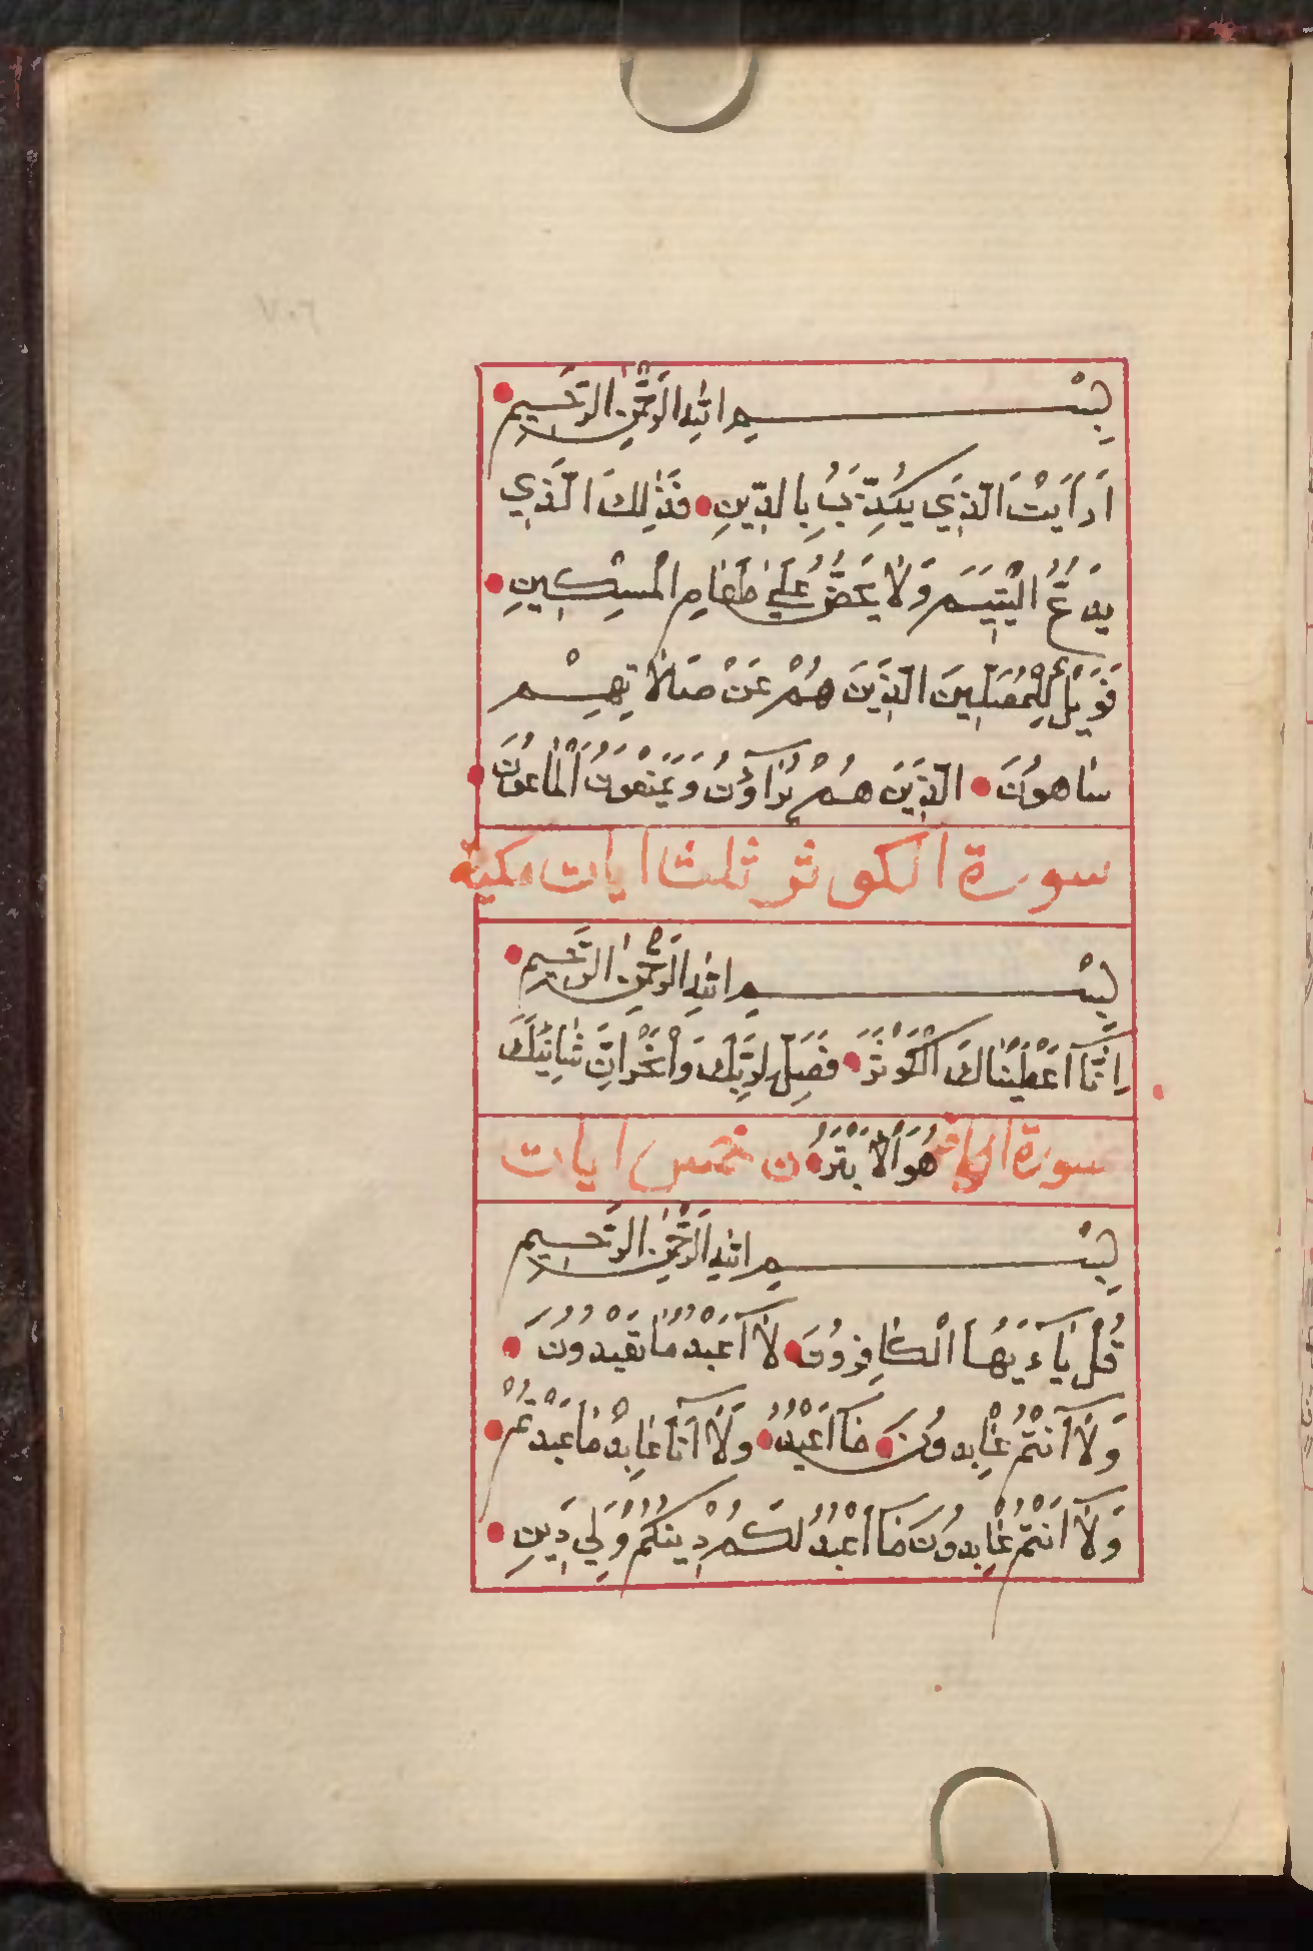 بِسْمِ اللهِ الرَّحْمٰنِ الرَّحِيمِ
اَرَاَيْتَ الَّذِي يُكَذِّبُ بِالدِّينِ فَذٰلِكَ الَّذِي
يَدُعُّ الْيَتِيمَ وَلَا يَحُضُّ عَلٰي طَعَامِ الْمِسْكِينِ
فَوَيْلٌ لِلْمُصَلِّينَ الَّذِينَ هُمْ عَنْ صَلَاتِهِمْ
سَاهُونَ الَّذِينَ هُمْ يُرَآؤُنَ وَيَمْنَعُونَ الْمَاعُونَ
سورة الكوثر ثلث ايات مكية
بِسْمِ اللهِ الرَّحْمٰنِ الرَّحِيمِ
اِنَّآ اَعْطَيْنَاكَ الْكَوْثَرَ فَصَلِّ لِرَبِّكَ وَانْحَرْ اِنَّ شَانِئَكَ
هُوَ الْاَبْتَرُ
سورة الكافرون خمس ايات
بِسْمِ اللهِ الرَّحْمٰنِ الرَّحِيمِ
قُلْ يَآءَيُّهَا الْكَافِرُونَ لَآ اَعْبُدُ مَا تَعْبُدُونَ
وَلَآ اَنْتُمْ عَابِدُونَ مَآ اَعْبُدُ وَلَآ اَنَا عَابِدٌ مَا عَبَدْتُمْ
وَلَآ اَنْتُمْ عَابِدُونَ مَآ اَعْبُدُ لَكُمْ دِينُكُمْ وَلِيَ دِينِ